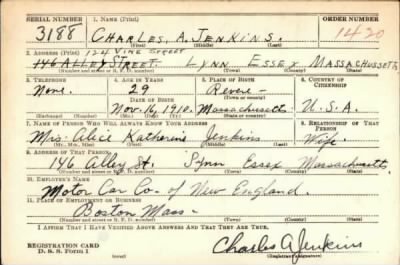 SERIAL NUMBER 1. NAME (Print) ORDER NUMBER
3188 CHARLES, A. JENKINS. 1420
(First) (Middle) (Last)
2. ADDRESS (Print) 124 VINE STREET
146 ALLEY STREET. LYNN ESSEX MASSACHUSSETTS
(Number and street) (Town) (County) (State)
3. TELEPHONE 4. AGE IN YEARS 5. PLACE OF BIRTH 6. COUNTRY OF CITIZENSHIP
None. 29 Revere-
DATE OF BIRTH (Town or county)
Nov. 16, 1910. Massachusetts U.S.A.
(Mo.) (Day) (Yr.) (State or country)
7. NAME OF PERSON WHO WILL ALWAYS KNOW YOUR ADDRESS 8. RELATIONSHIP OF THAT PERSON
Mrs. Alice Katherine Jenkins Wife.
(Mr., Mrs., Miss) (First) (Middle) (Last)
9. ADDRESS OF THAT PERSON
146 Alley St. Lynn Essex Massachusetts
(Number and street) (Town) (County) (State)
10. EMPLOYER'S NAME
Motor Car Co. of New England.
11. PLACE OF EMPLOYMENT OR BUSINESS
Boston Mass-
(Number and street) (Town) (County) (State)
I AFFIRM THAT I HAVE VERIFIED ABOVE ANSWERS AND THAT THEY ARE TRUE.
REGISTRATION CARD
D. S. S. Form 1 Charles A Jenkins
(Registrant's signature)